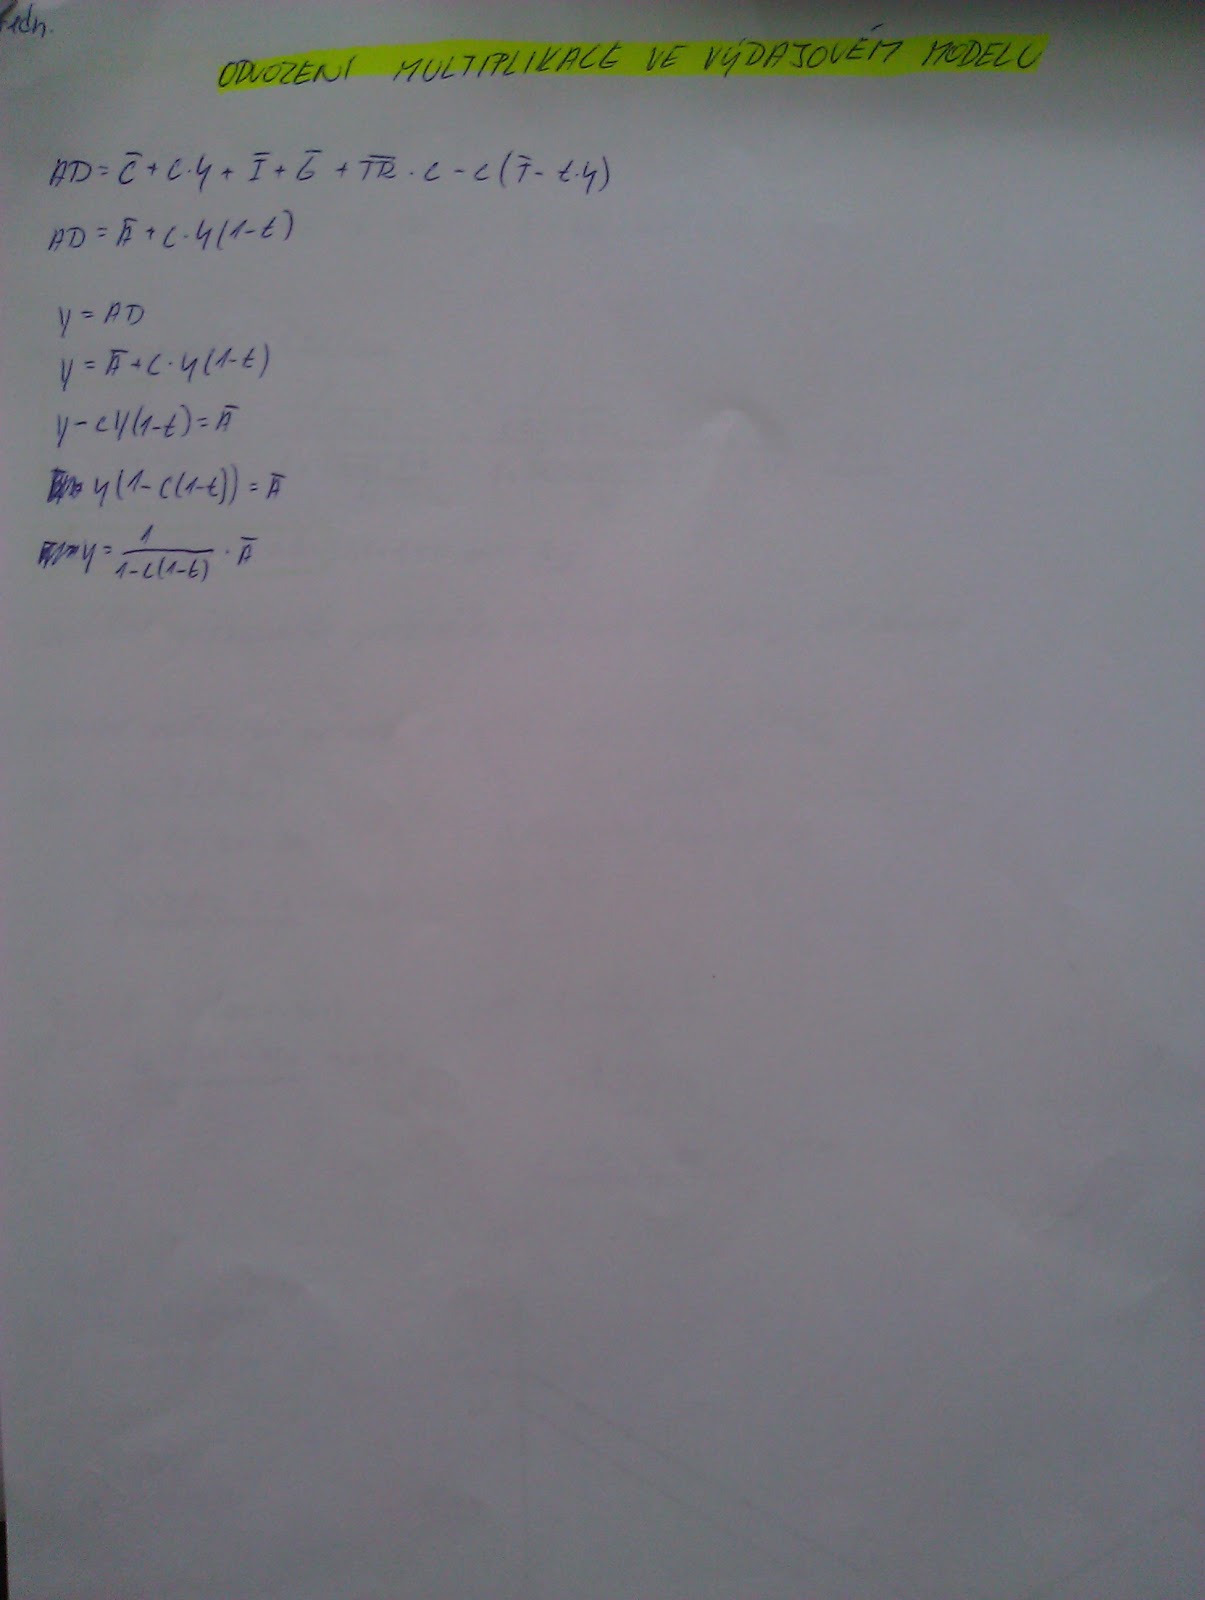 ODVOZENÍ MULTIPLIKACE VE VÝDAJOVÉM MODELU
AD = C̄ + c·y + Ī + Ḡ + T̄R̄·c - c(T̄ - t·y)
AD = Ā + c·y(1-t)
y = AD
y = Ā + c·y(1-t)
y - cy(1-t) = Ā
y(1 - c(1-t)) = Ā
y = 1/(1-c(1-t)) · Ā